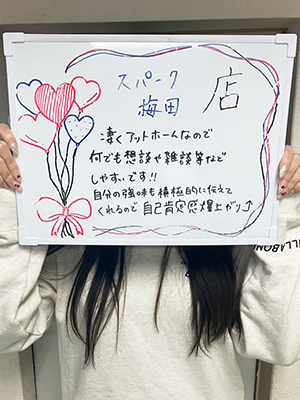 スパーク
梅田 店
凄くアットホームなので
何でも想談や雑談等など
しやすいです!!
自分の強味も積極的に伝えて
くれるので自己肯定感爆上がり⤴
BILLABONG